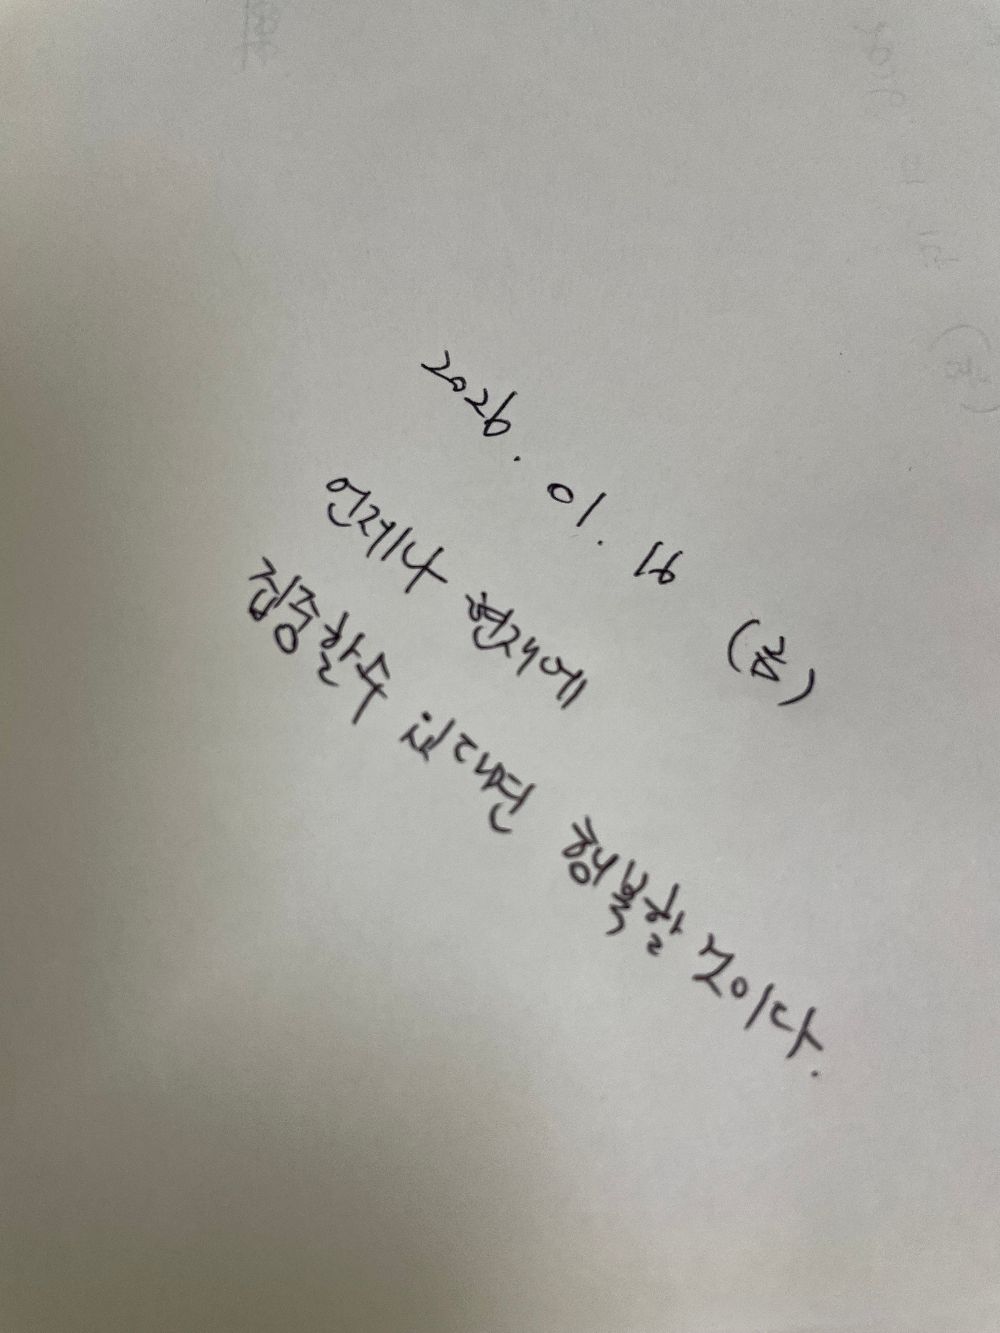 2026. 01. 16 (금)
언제나 현재에
집중할수 있다면 행복할 것이다.